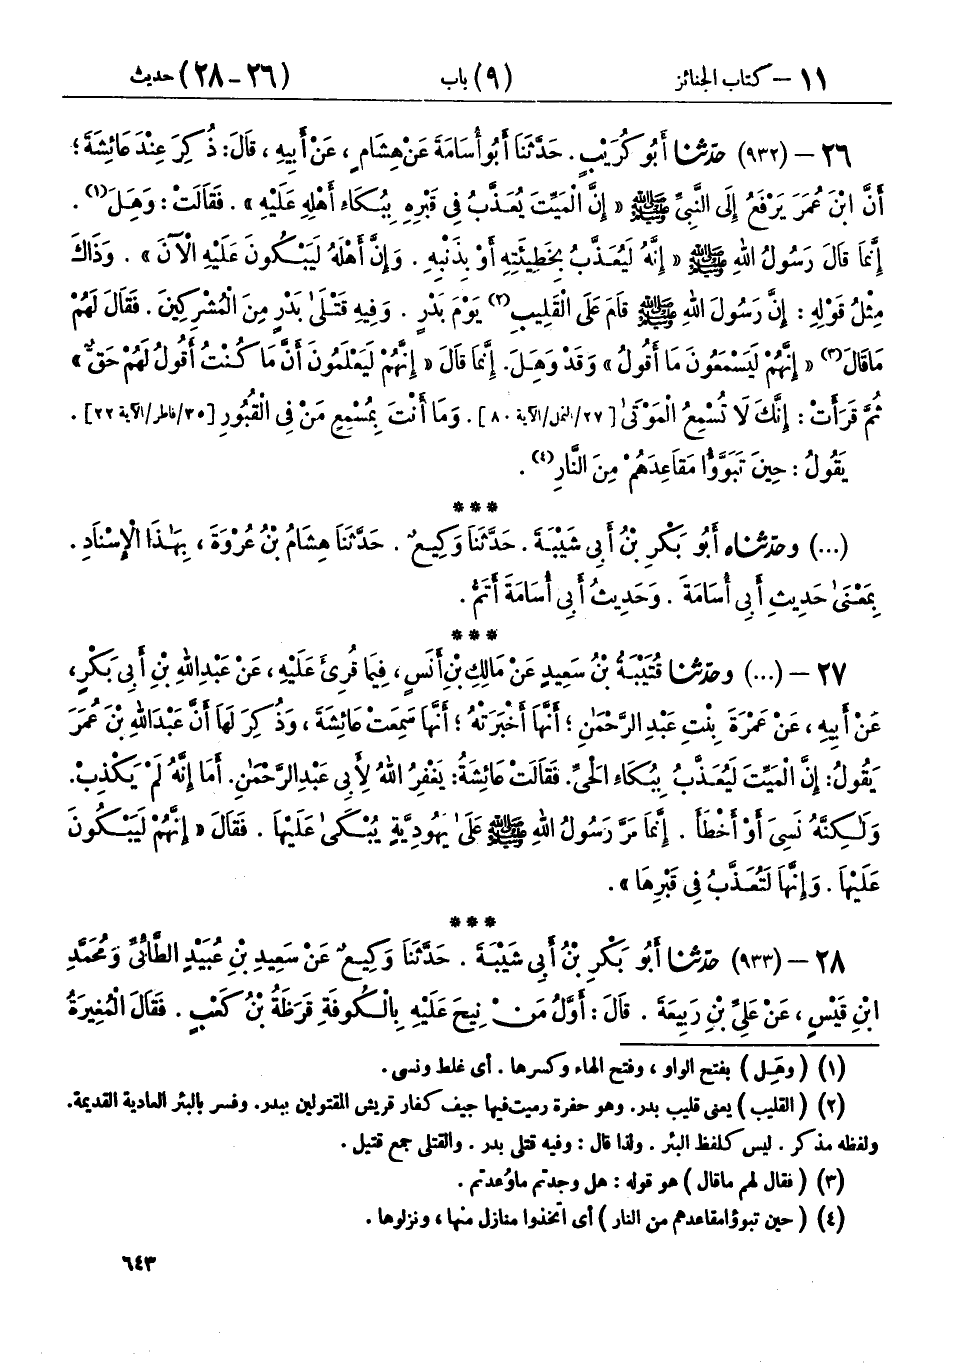 ١١ - كتاب الجنائز (٩) باب (٢٦-٢٨) حديث
٢٦ - (٩٣٢) حدّثنا أَبُو كُرَيْبٍ. حَدَّثَنَا أَبُو أُسَامَةَ عَنْ هِشَامٍ، عَنْ أَبِيهِ، قَالَ: ذُكِرَ عِنْدَ عَائِشَةَ؛
أَنَّ ابْنَ عُمَرَ يَرْفَعُ إِلَى النَّبِيِّ ﷺ « إِنَّ الْمَيِّتَ يُعَذَّبُ فِي قَبْرِهِ بِبُكَاءِ أَهْلِهِ عَلَيْهِ ». فَقَالَتْ: وَهَلَ(١).
إِنَّمَا قَالَ رَسُولُ اللهِ ﷺ « إِنَّهُ لَيُعَذَّبُ بِخَطِيئَتِهِ أَوْ بِذَنْبِهِ. وَإِنَّ أَهْلَهُ لَيَبْكُونَ عَلَيْهِ الْآنَ ». وَذَاكَ
مِثْلُ قَوْلِهِ: إِنَّ رَسُولَ اللهِ ﷺ قَامَ عَلَى الْقَلِيبِ(٢) يَوْمَ بَدْرٍ. وَفِيهِ قَتْلَىٰ بَدْرٍ مِنَ الْمُشْرِكِينَ. فَقَالَ لَهُمْ
مَا قَالَ(٣) « إِنَّهُمْ لَيَسْمَعُونَ مَا أَقُولُ » وَقَدْ وَهَلَ. إِنَّمَا قَالَ « إِنَّهُمْ لَيَعْلَمُونَ أَنَّ مَا كُنْتُ أَقُولُ لَهُمْ حَقٌّ »
ثُمَّ قَرَأَتْ: إِنَّكَ لَا تُسْمِعُ الْمَوْتَىٰ [٢٧/النمل/الآية ٨٠]. وَمَا أَنْتَ بِمُسْمِعٍ مَنْ فِي الْقُبُورِ [٣٥/فاطر/الآية ٢٢].
يَقُولُ: حِينَ تَبَوَّؤُا مَقَاعِدَهُمْ مِنَ النَّارِ(٤).
***
(...) وحدّثناه أَبُو بَكْرِ بْنُ أَبِي شَيْبَةَ. حَدَّثَنَا وَكِيعٌ. حَدَّثَنَا هِشَامُ بْنُ عُرْوَةَ، بِهَٰذَا الْإِسْنَادِ.
بِمَعْنَىٰ حَدِيثِ أَبِي أُسَامَةَ. وَحَدِيثُ أَبِي أُسَامَةَ أَتَمُّ.
***
٢٧ - (...) وحدّثنا قُتَيْبَةُ بْنُ سَعِيدٍ عَنْ مَالِكِ بْنِ أَنَسٍ، فِيمَا قُرِئَ عَلَيْهِ، عَنْ عَبْدِ اللهِ بْنِ أَبِي بَكْرٍ،
عَنْ أَبِيهِ، عَنْ عَمْرَةَ بِنْتِ عَبْدِ الرَّحْمَٰنِ؛ أَنَّهَا أَخْبَرَتْهُ؛ أَنَّهَا سَمِعَتْ عَائِشَةَ، وَذُكِرَ لَهَا أَنَّ عَبْدَ اللهِ بْنَ عُمَرَ
يَقُولُ: إِنَّ الْمَيِّتَ لَيُعَذَّبُ بِبُكَاءِ الْحَيِّ. فَقَالَتْ عَائِشَةُ: يَغْفِرُ اللهُ لِأَبِي عَبْدِ الرَّحْمَٰنِ. أَمَا إِنَّهُ لَمْ يَكْذِبْ.
وَلَٰكِنَّهُ نَسِيَ أَوْ أَخْطَأَ. إِنَّمَا مَرَّ رَسُولُ اللهِ ﷺ عَلَىٰ يَهُودِيَّةٍ يُبْكَىٰ عَلَيْهَا. فَقَالَ « إِنَّهُمْ لَيَبْكُونَ
عَلَيْهَا. وَإِنَّهَا لَتُعَذَّبُ فِي قَبْرِهَا ».
***
٢٨ - (٩٣٣) حدّثنا أَبُو بَكْرِ بْنُ أَبِي شَيْبَةَ. حَدَّثَنَا وَكِيعٌ عَنْ سَعِيدِ بْنِ عُبَيْدٍ الطَّائِيِّ وَمُحَمَّدِ
ابْنِ قَيْسٍ، عَنْ عَلِيِّ بْنِ رَبِيعَةَ. قَالَ: أَوَّلُ مَنْ نِيحَ عَلَيْهِ بِالْكُوفَةِ قَرَظَةُ بْنُ كَعْبٍ. فَقَالَ الْمُغِيرَةُ
(١) (وهل) بفتح الواو، وفتح الهاء وكسرها. أى غلط ونسى.
(٢) (القليب) يعنى قليب بدر. وهو حفرة رميت فيها جيف كفار قريش المقتولين ببدر. وفسر بالبئر العادية القديمة.
ولفظه مذكر. ليس كلفظ البئر. ولذا قال: وفيه قتلى بدر. والقتلى جمع قتيل.
(٣) (فقال لهم ماقال) هو قوله: هل وجدتم ماوُعدتم.
(٤) (حين تبوؤا مقاعدهم من النار) أى اتخذوا منازل منها، ونزلوها.
٦٤٣